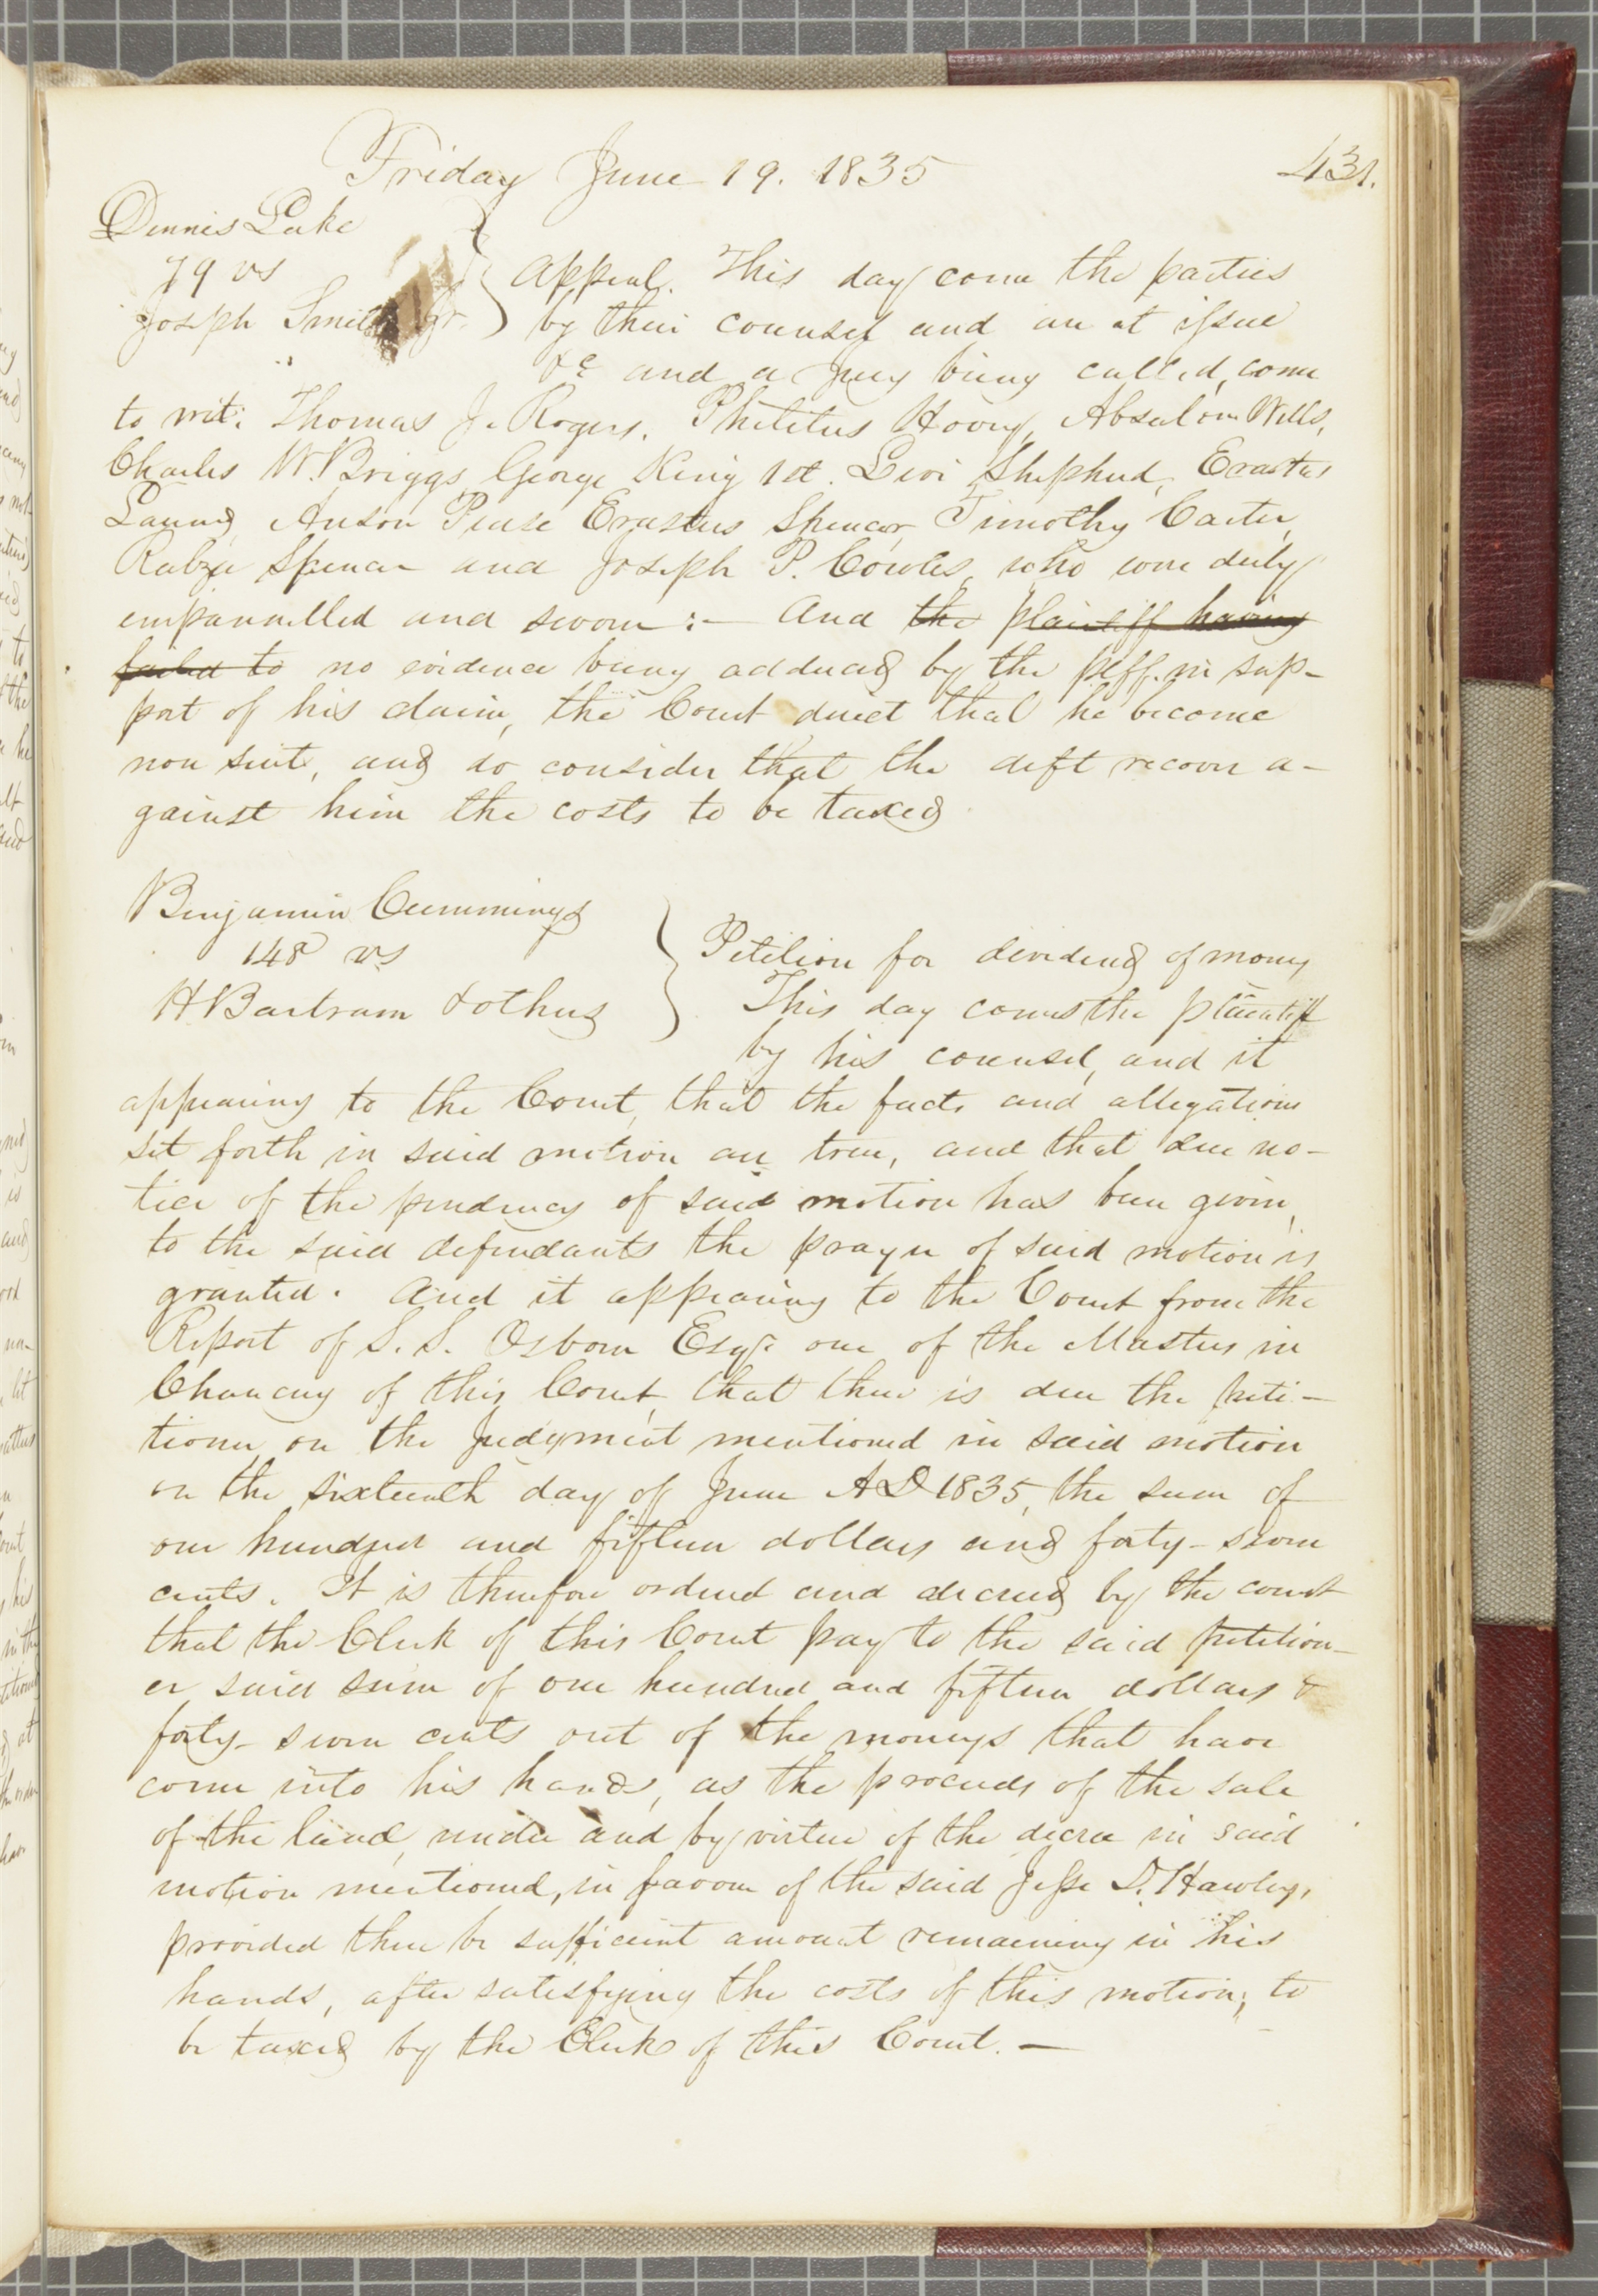 Friday June 19. 1835
431.
Dennis Lake
79 vs
Joseph Smith Jr.
Appeal. This day come the parties
by their counsel and are at issue
&c and a jury being called, come
to wit: Thomas J. Rogers, Philitus Hovey, Absalom Wells,
Charles W. Briggs, George King 1st. Levi Shepherd, Erastus
Anson Pease Erastus Spencer, Timothy Carter,
Rabza Spencer and Joseph P. Cowles, who were duly
empannelled and sworn :— And the plaintiff having
failed to no evidence being adduced by the plff. in sup-
port of his claim, the Court direct that he become
non suit, and do consider that the deft recover a-
gainst him the costs to be taxed
Benjamin Cummings
148 vs
H Bartram & others
Petition for dividend of money
This day comes the plaintiff
by his counsel, and it
appearing to the Court, that the facts and allegations
set forth in said motion are true, and that due no-
tice of the pendency of said motion has been given,
to the said defendants the prayer of said motion is
granted. And it appearing to the Court from the
Report of S. S. Osborn Esqr one of the Masters in
Chancery of this Court, that there is due the peti-
tioner on the Judgment mentioned in said motion
on the sixteenth day of June AD 1835, the sum of
one hundred and fifteen dollars and forty-seven
cents. It is therefore ordered and decreed by the court
that the Clerk of this Court pay to the said petition-
er said sum of one hundred and fifteen dollars &
forty-seven cents out of the moneys that have
come into his hands, as the proceeds of the sale
of the land, under and by virtue of the decree in said
motion mentioned, in favour of the said Jesse D. Hawley,
provided there be sufficient amount remaining in his
hands, after satisfying the costs of this motion; to
be taxed by the Clerk of this Court. —